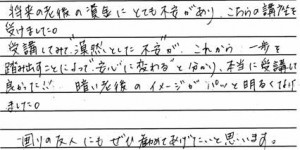 将来の老後の資金にとても不安があり、こちらの講座を
受けました。
受講してみて、"漠然とした不安"が、これから一歩を
踏み出すことによって"安心に変わる"と分かり、本当に受講して
良かった!! 暗い老後のイメージがパーッと明るくなり
ました。
周りの友人にもぜひ勧めてあげたいと思います。